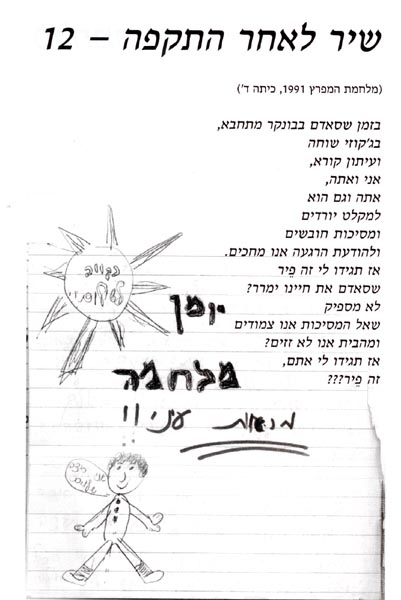 שיר לאחר התקפה – 12
(מלחמת המפרץ 1991, כיתה ד')
בזמן שסאדם בבונקר מתחבא,
בג'קוזי שוחה
ועיתון קורא,
אני ואתה,
אתה וגם הוא
למקלט יורדים
ומסיכות חובשים
ולהודעת הרגעה אנו מחכים.
אז תגידו לי זה פֵיר
שסאדם את חיינו ימרר?
לא מספיק
שאל המסיכות אנו צמודים
ומהבית אנו לא זזים?
אז תגידו לי אתם,
זה פֵיר???
יומן
מלחמה
מאת